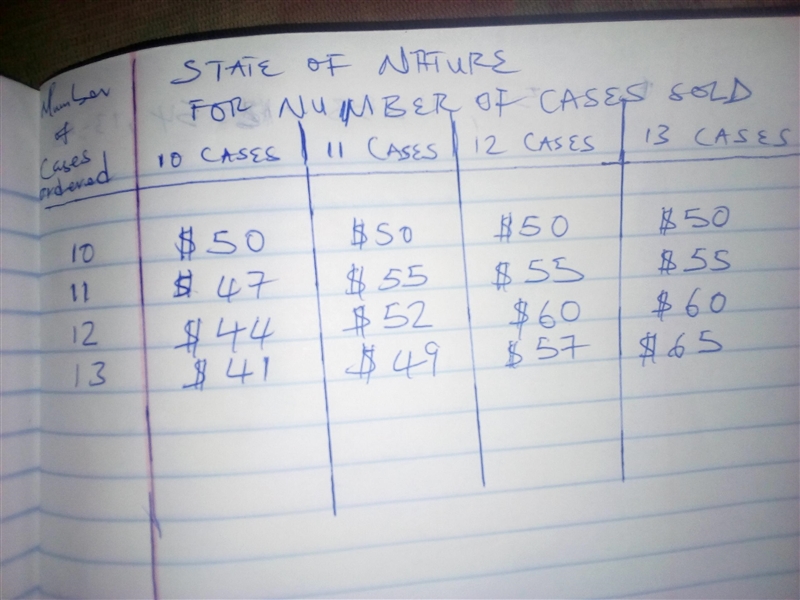 STATE OF NATURE
FOR NUMBER OF CASES SOLD
Number
of
Cases
ordered
10 CASES 11 CASES 12 CASES 13 CASES
10 $50 $50 $50 $50
11 $47 $55 $55 $55
12 $44 $52 $60 $60
13 $41 $49 $57 $65